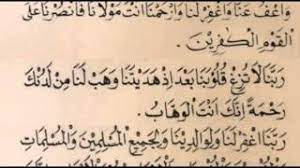 وَاعْفُ عَنَّا وَاغْفِرْ لَنَا وَارْحَمْنَا اَنْتَ مَوْلَانَا فَانْصُرْنَا عَلَى
الْقَوْمِ الْكٰفِرِيْنَ.
رَبَّنَا لَا تُزِغْ قُلُوْبَنَا بَعْدَ اِذْ هَدَيْتَنَا وَهَبْ لَنَا مِنْ لَدُنْكَ
رَحْمَةً اِنَّكَ اَنْتَ الْوَهَّابُ
رَبَّنَا اغْفِرْ لَنَا وَلِوَالِدِيْنَا وَلِجَمِيْعِ الْمُسْلِمِيْنَ وَالْمُسْلِمَاتِ